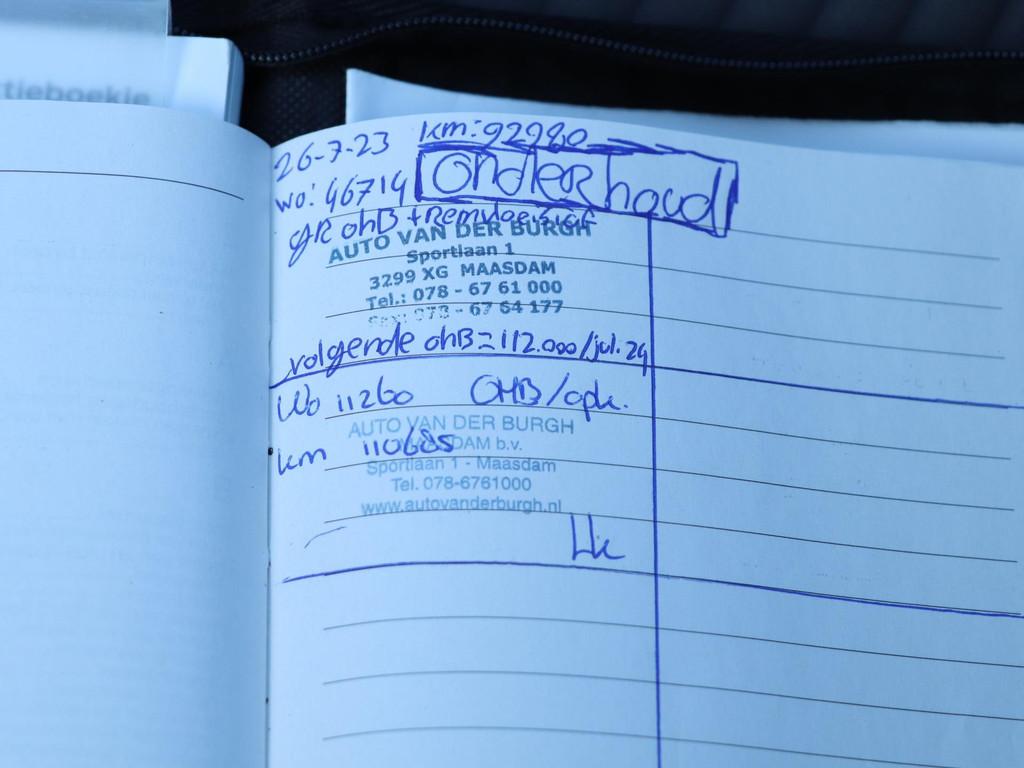 tieboekje
26-7-23 km: 92980
wo: 46714 Onderhoud
gR ohB + Remvloeistof
AUTO VAN DER BURGH
Sportlaan 1
3299 XG MAASDAM
Tel.: 078 - 67 61 000
Fax: 078 - 67 64 177
volgende ohB = 112.000/jul. 24
Wo 11260 OHB/apk.
AUTO VAN DER BURGH
MAASDAM b.v.
km 110685
Sportlaan 1 - Maasdam
Tel. 078-6761000
www.autovanderburgh.nl